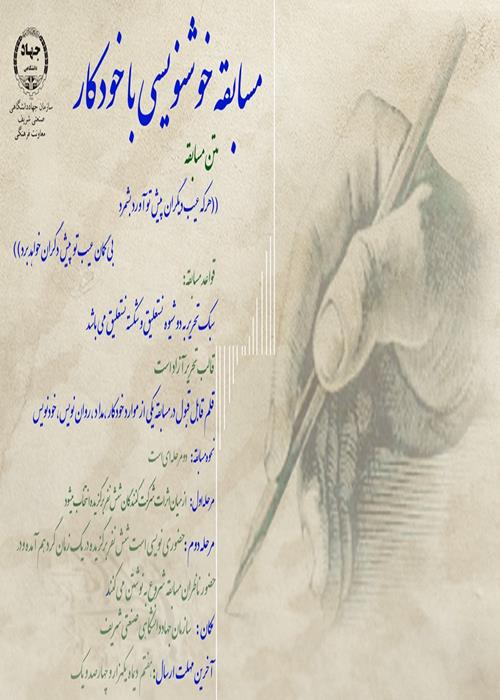 جهاد
دانشگاهی
سازمان جهاددانشگاهی
صنعتی شریف
معاونت فرهنگی
مسابقه خوشنویسی با خودکار
متن مسابقه
((هرکه عیب دیگران پیش تو آورد بشمرد
بی گمان عیب تو پیش دگران خواهد برد))
قواعد مسابقه:
سبک تحریر به دو شیوه نستعلیق و شکسته نستعلیق می باشد
قالب تحریر آزاد است
قلم قابل قبول در مسابقه یکی از موارد خودکار، مداد، روان نویس، خودنویس
نحوه مسابقه: دو مرحله ای است
مرحله اول: از میان اثرات شرکت کنندگان شش نفر برگزیده انتخاب میشود
مرحله دوم: حضوری نویسی است شش نفر برگزیده در یک زمان گرد هم آمده و در
حضور ناظران مسابقه شروع به نوشتن می کنند
مکان: سازمان جهاددانشگاهی صنعتی شریف
آخرین مهلت ارسال: هفتم دیماه یکهزار و چهارصد و یک